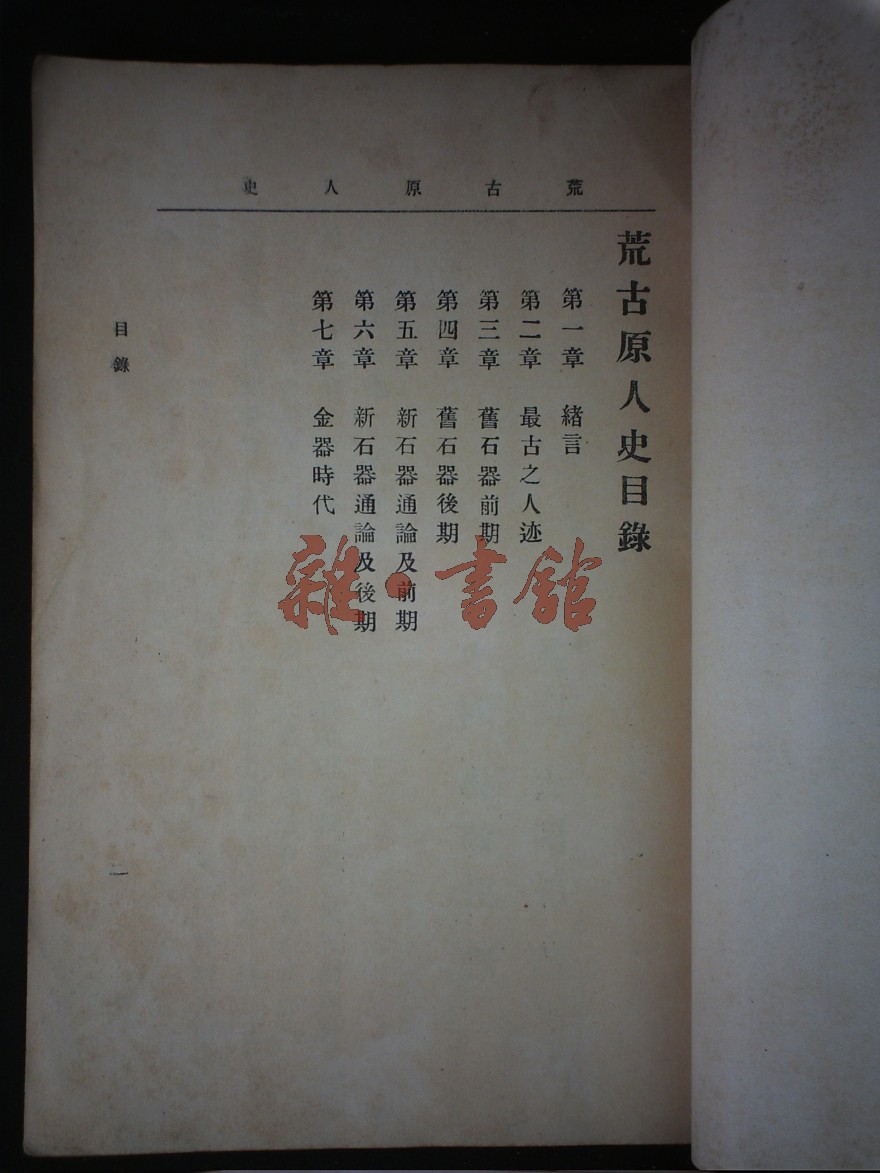 荒古原人史
荒古原人史目錄
第一章 緒言
第二章 最古之人迹
第三章 舊石器前期
第四章 舊石器後期
第五章 新石器通論及前期
第六章 新石器通論及後期
第七章 金器時代
目錄
一
雜·書館